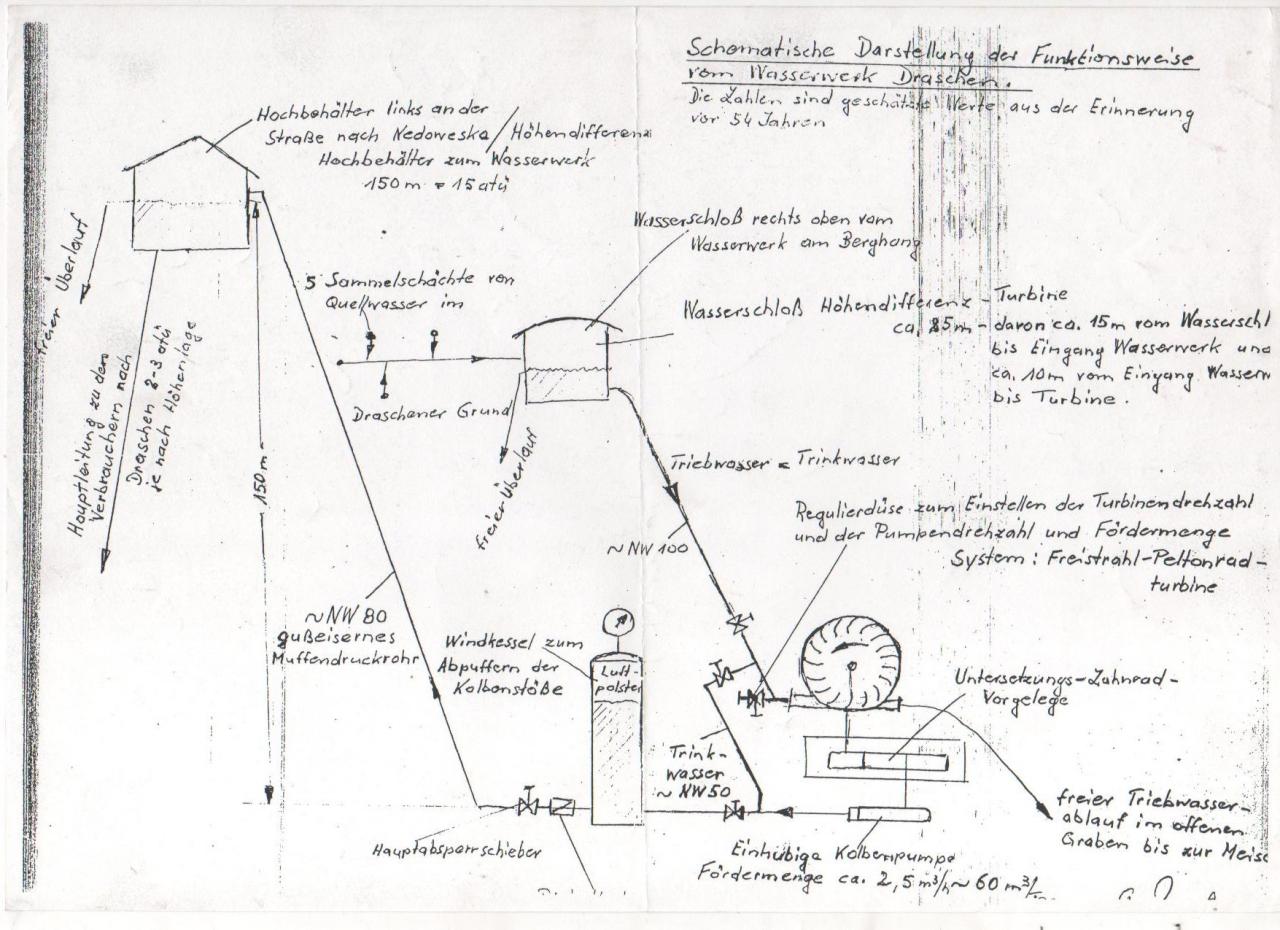 Schematische Darstellung der Funktionsweise
vom Wasserwerk Draschen.
Die Zahlen sind geschätzte Werte aus der Erinnerung
vor 54 Jahren
Hochbehälter links an der
Straße nach Nedoweska / Höhendifferenz
Hochbehälter zum Wasserwerk
150 m = 15 atü
Wasserschloß rechts oben vom
Wasserwerk am Berghang
freier Überlauf
5 Sammelschächte von
Quellwasser im
Draschener Grund
Wasserschloß Höhendifferenz - Turbine
ca. 25m - davon ca. 15m vom Wasserschl
bis Eingang Wasserwerk und
ca. 10m vom Eingang Wasserw
bis Turbine.
Hauptleitung zu den
Verbrauchern nach
Draschen 2-3 atü
je nach Höhenlage
150 m
freier Überlauf
Triebwasser = Trinkwasser
~ NW 100
Regulierdüse zum Einstellen der Turbinendrehzahl
und der Pumpendrehzahl und Fördermenge
System: Freistrahl-Peltonrad-
turbine
~ NW 80
gußeisernes
Muffendruckrohr
Windkessel zum
Abpuffern der
Kolbenstöße
Luft-
polster
Untersetzungs-Zahnrad-
Vorgelege
Trink-
wasser
~ NW 50
freier Triebwasser-
ablauf im offenen
Graben bis zur Meise
Hauptabsperrschieber
Einhubige Kolbenpumpe
Fördermenge ca. 2,5 m³/h ~ 60 m³/